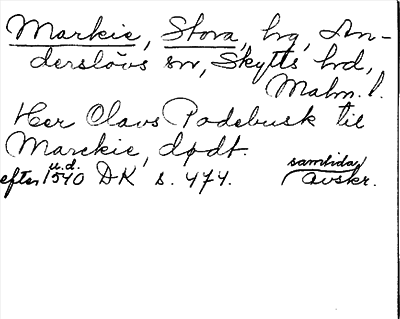 Markie, Stora, hg, An-
derslövs sn, Skytts hd,
Malm. l.
Her Claus Podebusk til
Marckie, dødt.
u.d.
efter 1540 DK s. 474. samtida avskr.